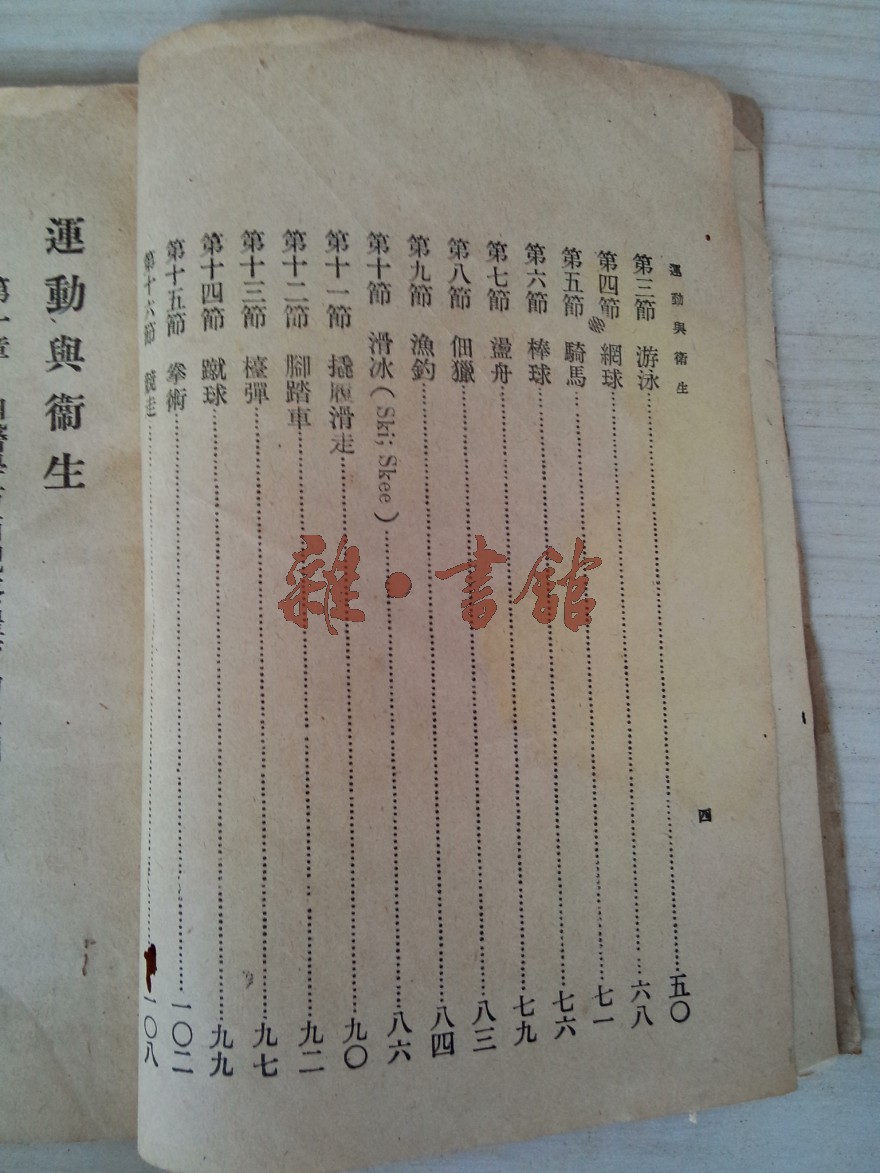 運動與衞生
第三節 游泳……五〇
第四節 網球……六八
第五節 騎馬……七一
第六節 棒球……七六
第七節 盪舟……七九
第八節 佃獵……八三
第九節 漁釣……八四
第十節 滑冰(Ski; Skee)……八六
第十一節 撬履滑走……九〇
第十二節 腳踏車……九二
第十三節 檯彈……九七
第十四節 蹴球……九九
第十五節 拳術……一〇二
第十六節 競走……一〇八
四
運動與衞生
雜·書館